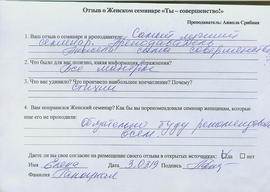 Отзыв о Женском семинаре «Ты – совершенство!»
Преподаватель: Анжела Срибная
1. Ваш отзыв о семинаре и преподавателе: Самый лучший
семинар. Преподаватель
само совершенство
2. Что было для вас полезно, какая информация, упражнения?
Все мантры
3. Что вас удивило? Что произвело наибольшее впечатление? Почему?
Стихии
4. Вам понравился Женский семинар? Как бы вы порекомендовали семинар женщинам, которые
еще его не проходили:
Обязательно буду рекомендовать
всем
Даете ли вы свое согласие на размещение своего отзыва в открытых источниках: Да нет
Имя Елена Дата 3.03.19 Подпись
Фамилия